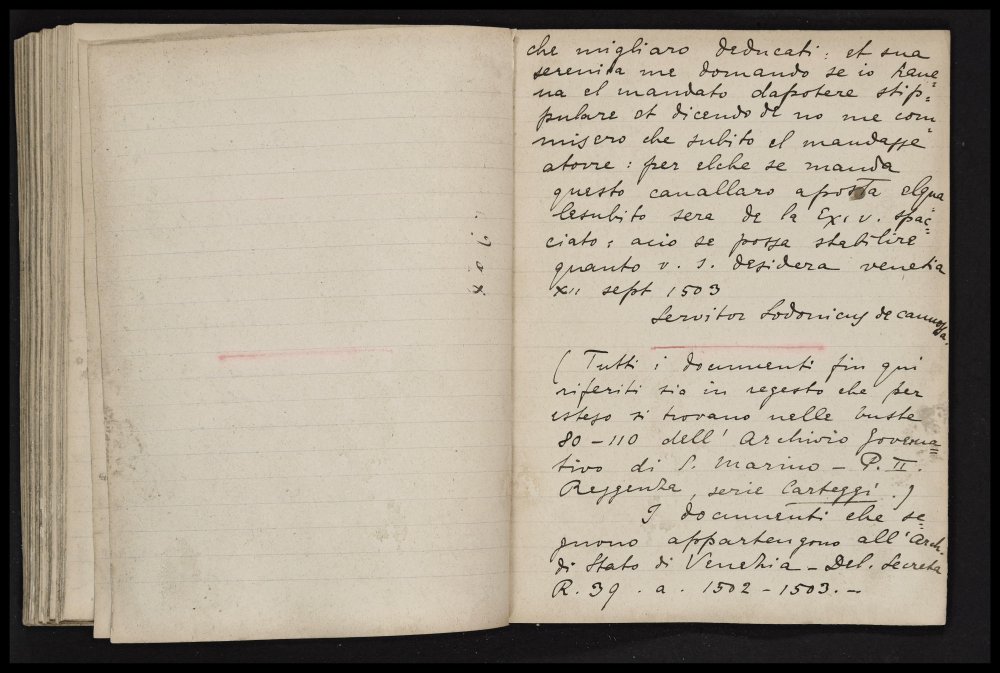 che migliaro deducati: et sua
serenita me domando se io haue=
ua el mandato dapotere stip=
pulare et dicendo de no me com=
misero che subito el mandasse
atorre: per elche se manda
questo cauallaro aposta elqua
lesubito sera de la Ex. v. spac=
ciato: acio se possa stabilire
quanto v. s. desidera venetia
XII sept 1503
Servitor Lodovicus de canossa.
(Tutti i documenti fin qui
riferiti sia in regesto che per
esteso si trovano nelle buste
80-110 dell' Archivio Governa=
tivo di S. Marino - P. II.
Reggenza, serie Carteggi.)
I documenti che se=
guono appartengono all' Arch.
di Stato di Venezia - Del. Secreta
R. 39. a. 1502-1503. -